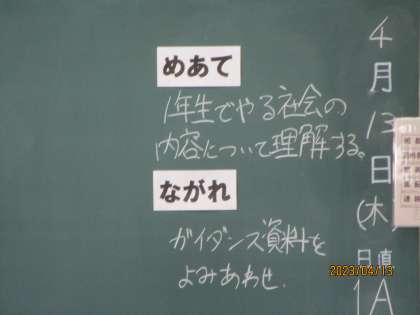 4月13日(木)
日直
1A
めあて
1年生でやる社会の
内容について理解する。
ながれ
ガイダンス資料を
よみあわせ.
2023/04/13